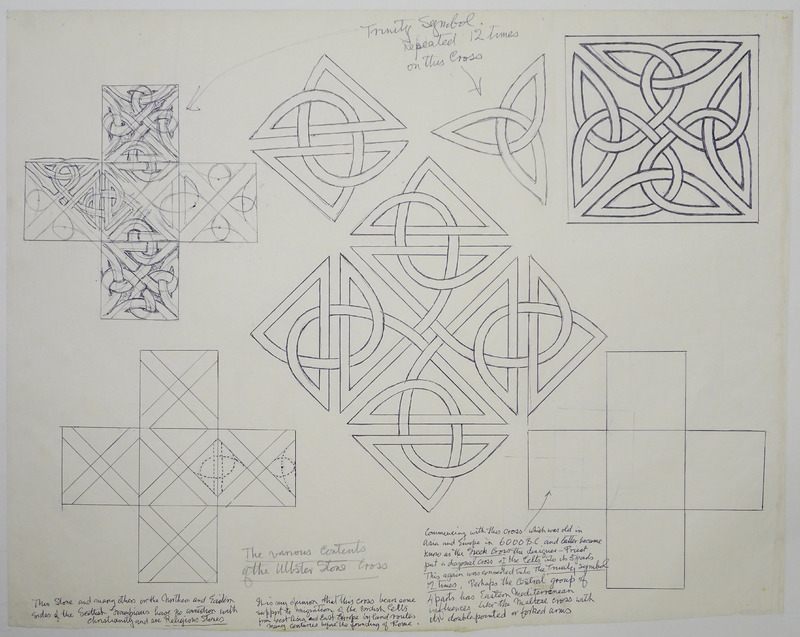 Trinity Symbol.
Repeated 12 times
on this Cross
The various Contents
of the Ulbster Stone Cross
This Stone and many others on the Northern and Eastern
sides of the Scottish Grampians have no connection with
Christianity and are Religious Stones
It is my opinion that this cross bears some
support to migration of the British Celts
from West Asia and East Europe by land routes
many centuries before the founding of Rome.
Commencing with this Cross which was old in
Asia and Europe in 6000 BC and latter became
know as the Greek Cross the designer-Priest
put a diagonal cross of the Celts into its 5 quads
This again was converted into the Trinity Symbol
12 times. Perhaps the Central group of
4 parts has Eastern Mediterranean
influences like the Maltese cross with
its double pointed or forked arms